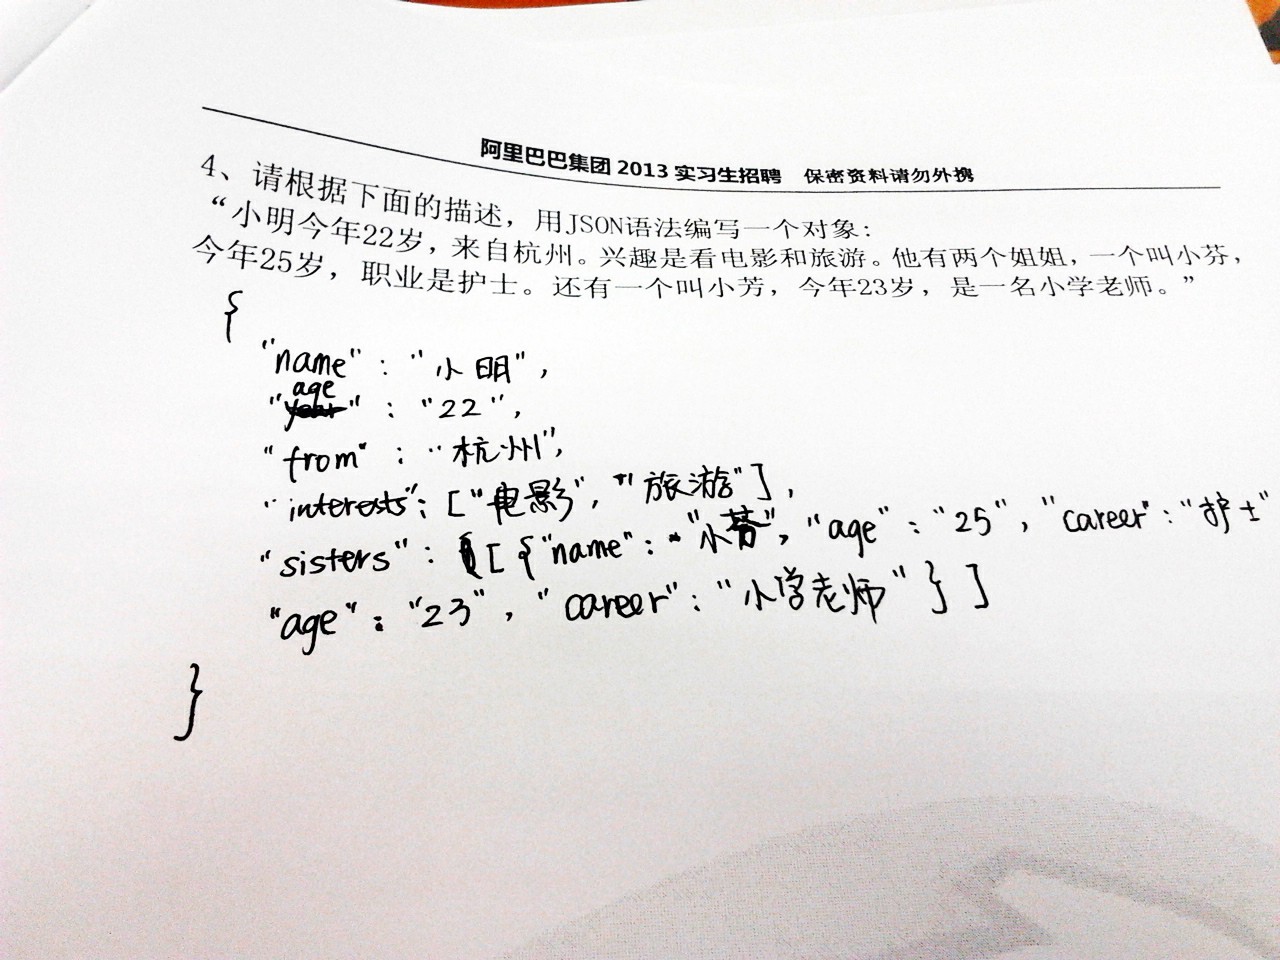 阿里巴巴集团 2013 实习生招聘 保密资料请勿外携
4、请根据下面的描述，用JSON语法编写一个对象：
“小明今年22岁，来自杭州。兴趣是看电影和旅游。他有两个姐姐，一个叫小芬，
今年25岁，职业是护士。还有一个叫小芳，今年23岁，是一名小学老师。”
{
"name" : "小明",
"age" : "22",
"from" : "杭州",
"interests": ["电影", "旅游"],
"sisters": [{"name": "小芬", "age": "25", "career": "护士"
"age": "23", "career": "小学老师"}]
}